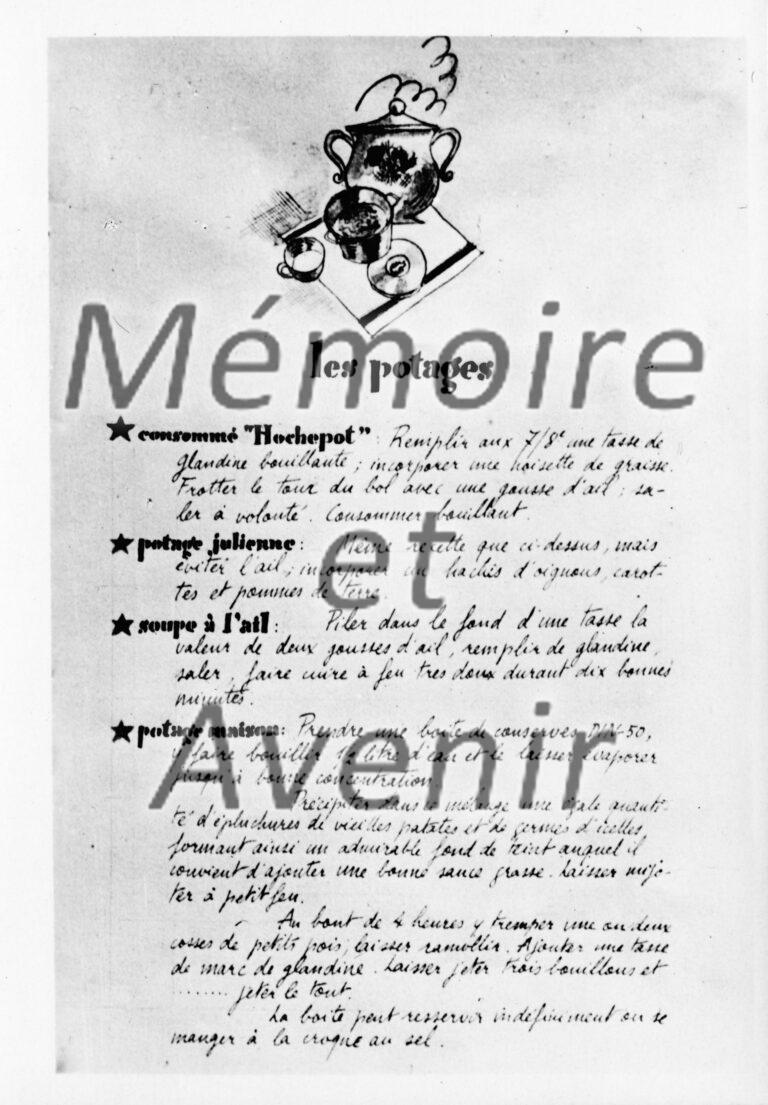 les potages
consommé "Hochepot" : Remplir aux 7/8e une tasse de
glandine bouillante ; incorporer une noisette de graisse.
Frotter le tour du bol avec une gousse d'ail ; sa-
ler à volonté. Consommer bouillant.
potage julienne : Même recette que ci-dessus, mais
éviter l'ail ; incorporer un hachis d'oignons, carot-
tes et pommes de terre.
soupe à l'ail : Piler dans le fond d'une tasse la
valeur de deux gousses d'ail, remplir de glandine,
saler, faire cuire à feu très doux durant dix bonnes
minutes.
potage maison : Prendre une boîte de conserves
y faire bouillir litre d'eau et le laisser évaporer
jusqu'à bonne concentration.
Précipiter dans le mélange une égale quanti-
té d'épluchures de vieilles patates et de germes d'icelles,
formant ainsi un admirable fond de teint auquel il
convient d'ajouter une bonne sauce grasse. Laisser mijo-
ter à petit feu.
Au bout de 4 heures y tremper une ou deux
cosses de petits pois ; laisser ramollir. Ajouter une tasse
de marc de glandine. Laisser jeter trois bouillons et
........ jeter le tout.
La boîte peut resservir indéfiniment ou se
manger à la croque au sel.
Mémoire
et
Avenir